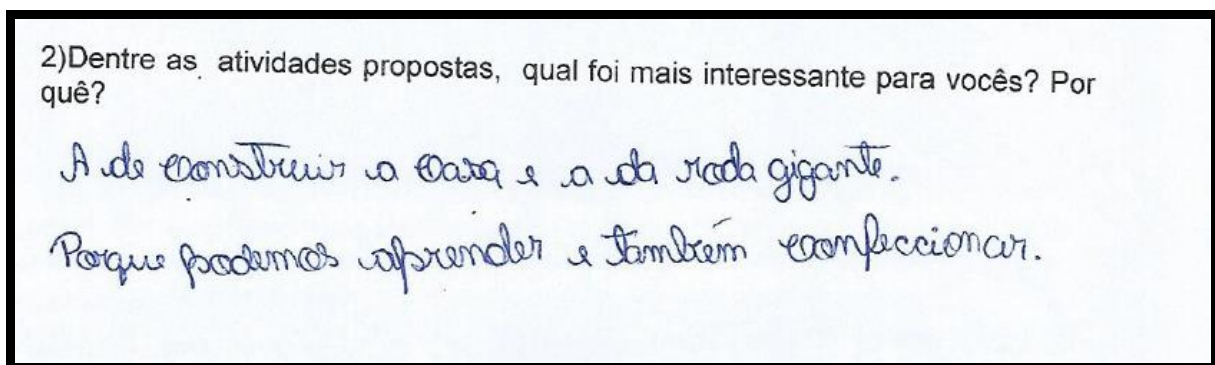 2)Dentre as atividades propostas, qual foi mais interessante para vocês? Por
quê?
A de construir a casa e a da roda gigante.
Porque podemos aprender e também confeccionar.